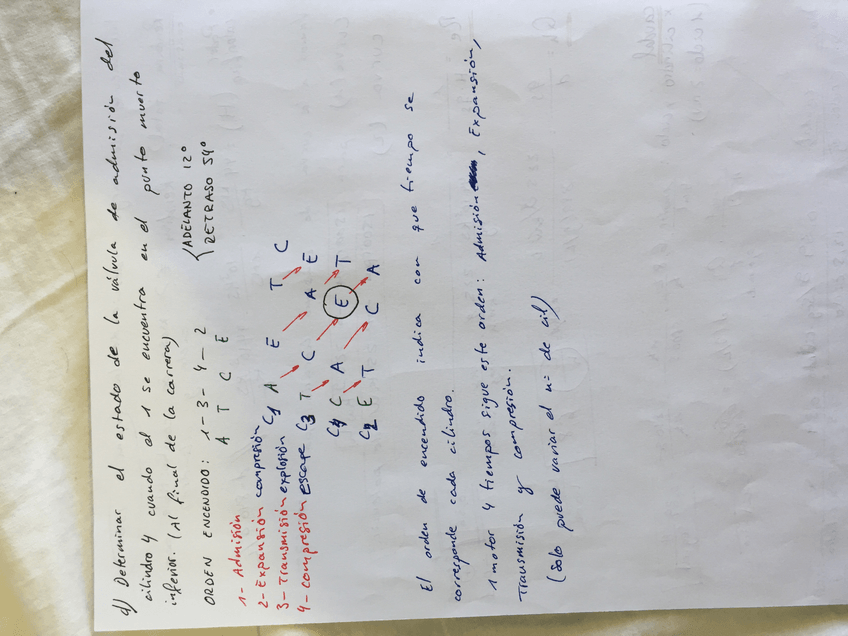 d) Determinar el estado de la válvula de admisión del
cilindro 4 cuando el 1 se encuentra en el punto muerto
inferior. (Al final de la carrera)
{ ADELANTO 12º
RETRASO 54º
ORDEN ENCENDIDO: 1-3-4-2
A T C E
1- Admisión
2- Expansión compresión
3- Transmisión explosión
4- compresión escape
C1 A E T C
C3 T C A E
C4 C A E T
C2 E T C A
El orden de encendido indica con que tiempo se
corresponde cada cilindro.
1 motor 4 tiempos sigue este orden: Admisión, Expansión,
Transmisión y compresión.
(Solo puede variar el nº de cil)